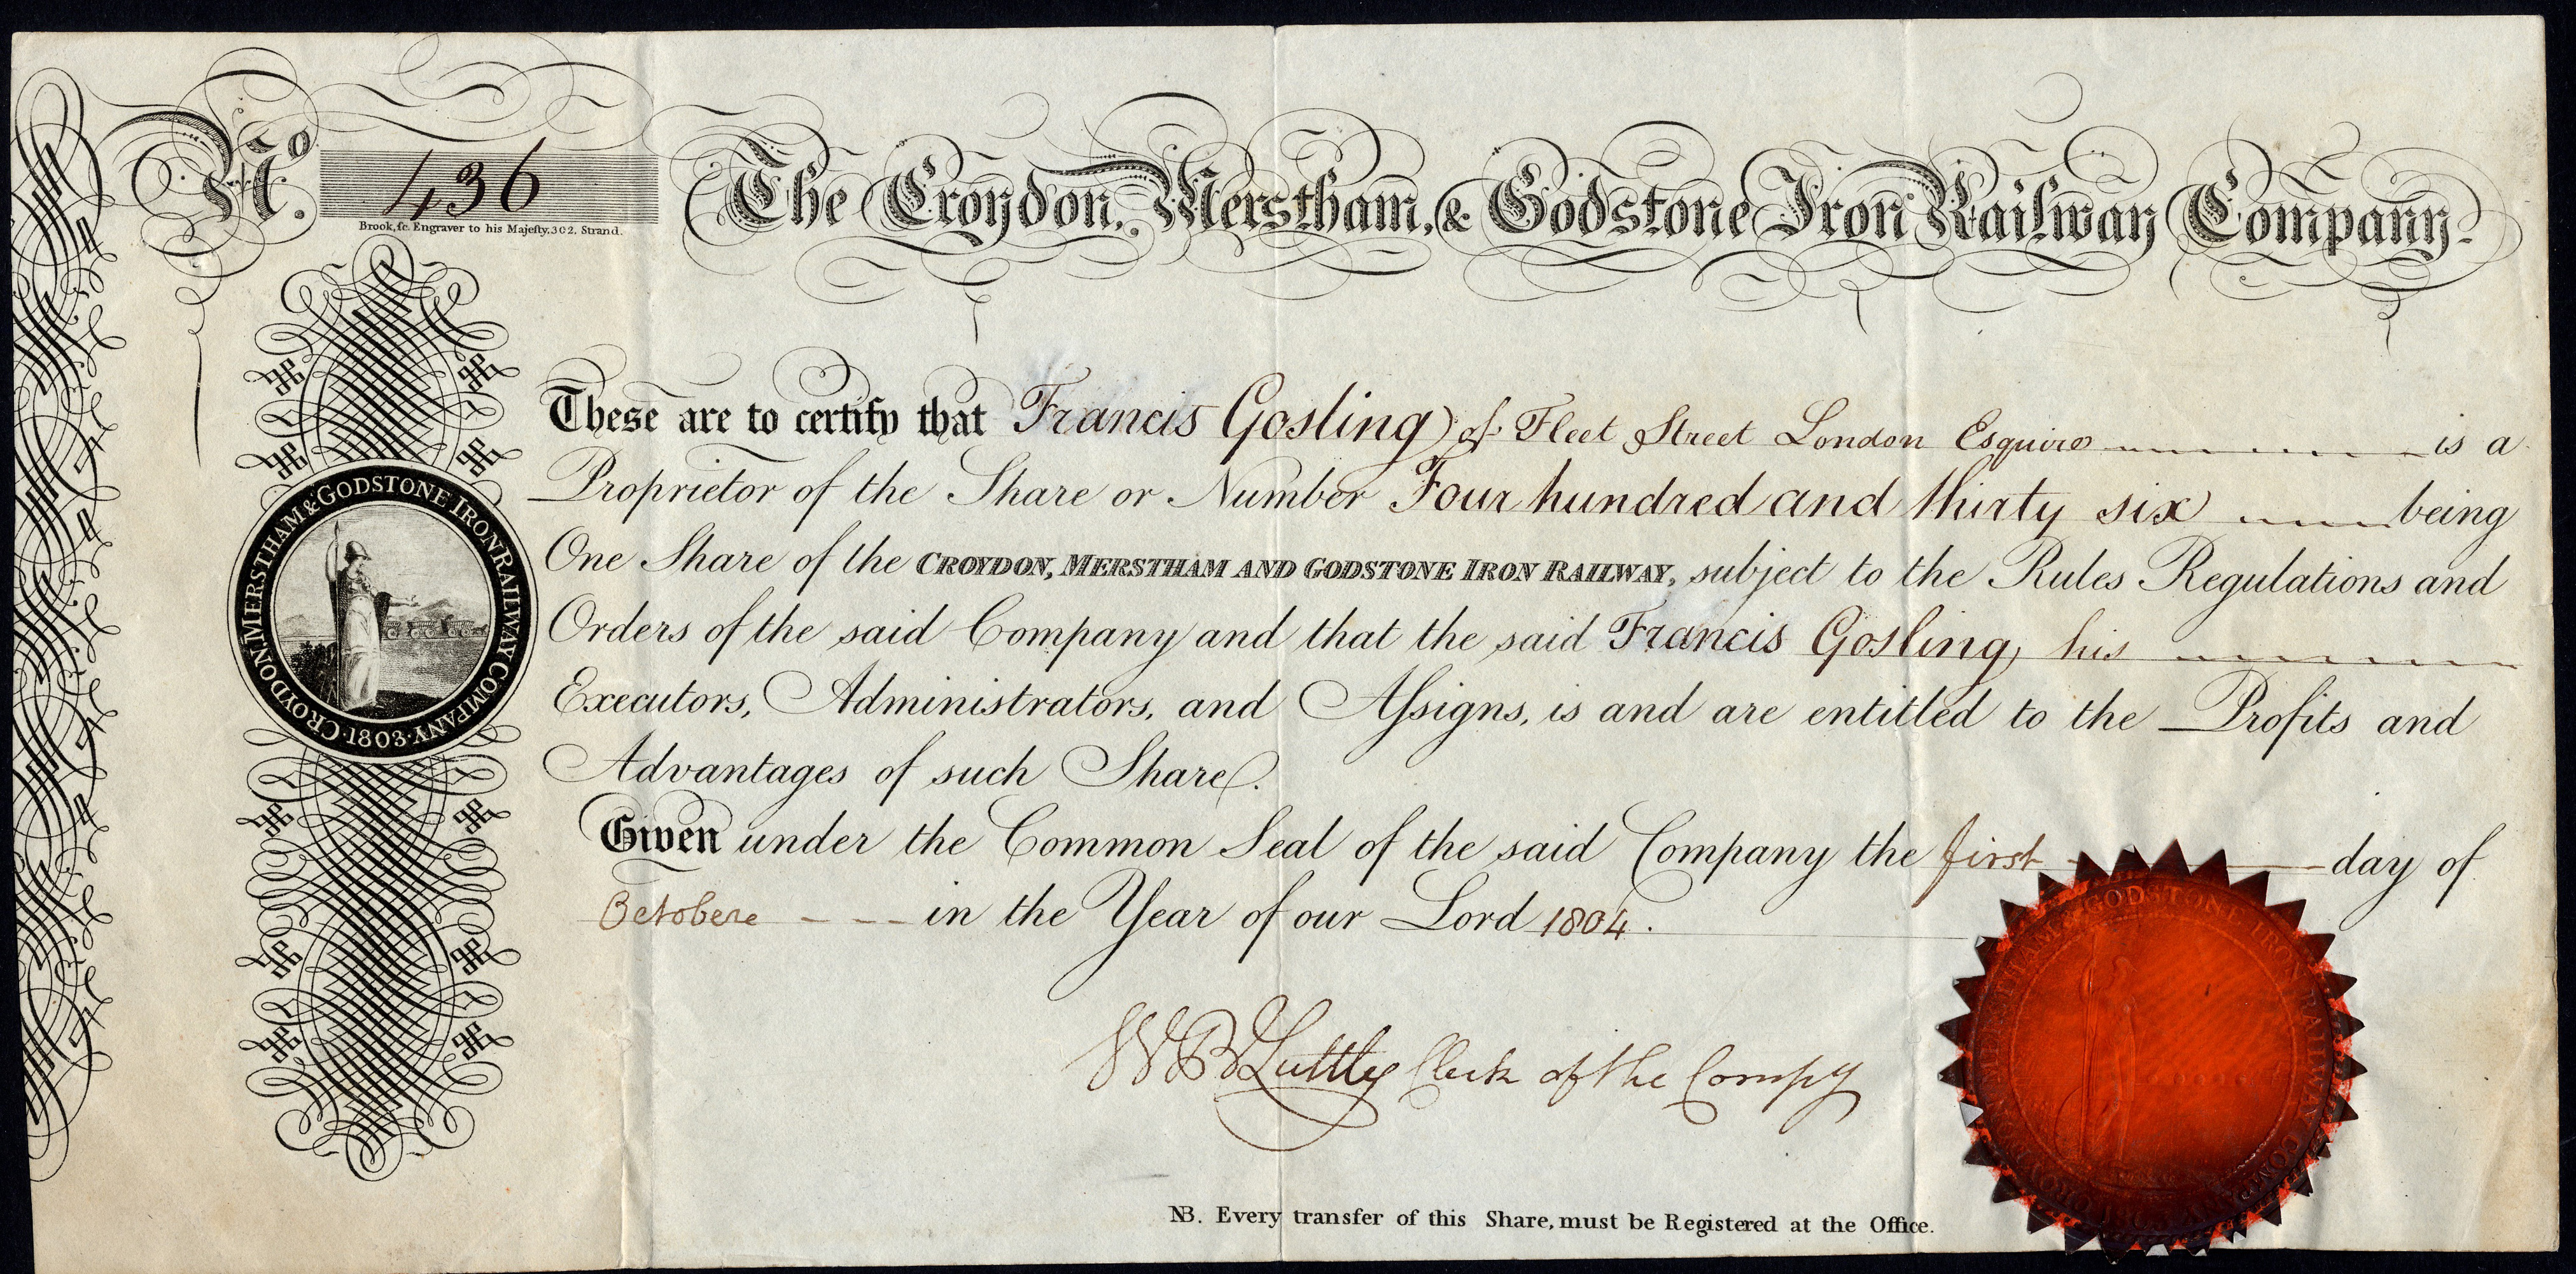 No. 436
Brook, sc. Engraver to his Majesty. 302. Strand.
The Croydon, Merstham, & Godstone Iron Railway Company.
These are to certify that Francis Gosling of Fleet Street London Esquire is a
Proprietor of the Share or Number Four hundred and thirty six being
One Share of the CROYDON, MERSTHAM AND GODSTONE IRON RAILWAY, subject to the Rules Regulations and
Orders of the said Company and that the said Francis Gosling, his
Executors, Administrators, and Assigns, is and are entitled to the Profits and
Advantages of such Share.
Given under the Common Seal of the said Company the first day of
October in the Year of our Lord 1804.
CROYDON, MERSTHAM & GODSTONE IRON RAILWAY COMPANY · 1803 ·
W B Luttly Clerk of the Compy
MERSTHAM & GODSTONE IRON RAILWAY COMP
NB. Every transfer of this Share, must be Registered at the Office.